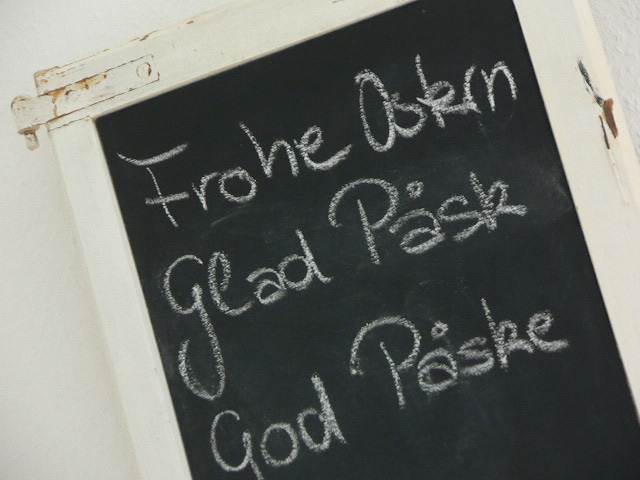 Frohe Ostern
Glad Påsk
God Påske